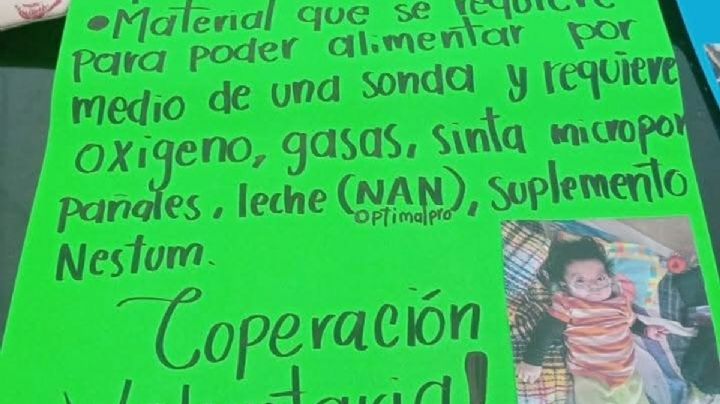 •Material que se requiere
para poder alimentar por
medio de una sonda y requiere
oxigeno, gasas, sinta micropor
pañales, leche (NAN), suplemento
Optimalpro
Nestum.
Coperación
Voluntaria!